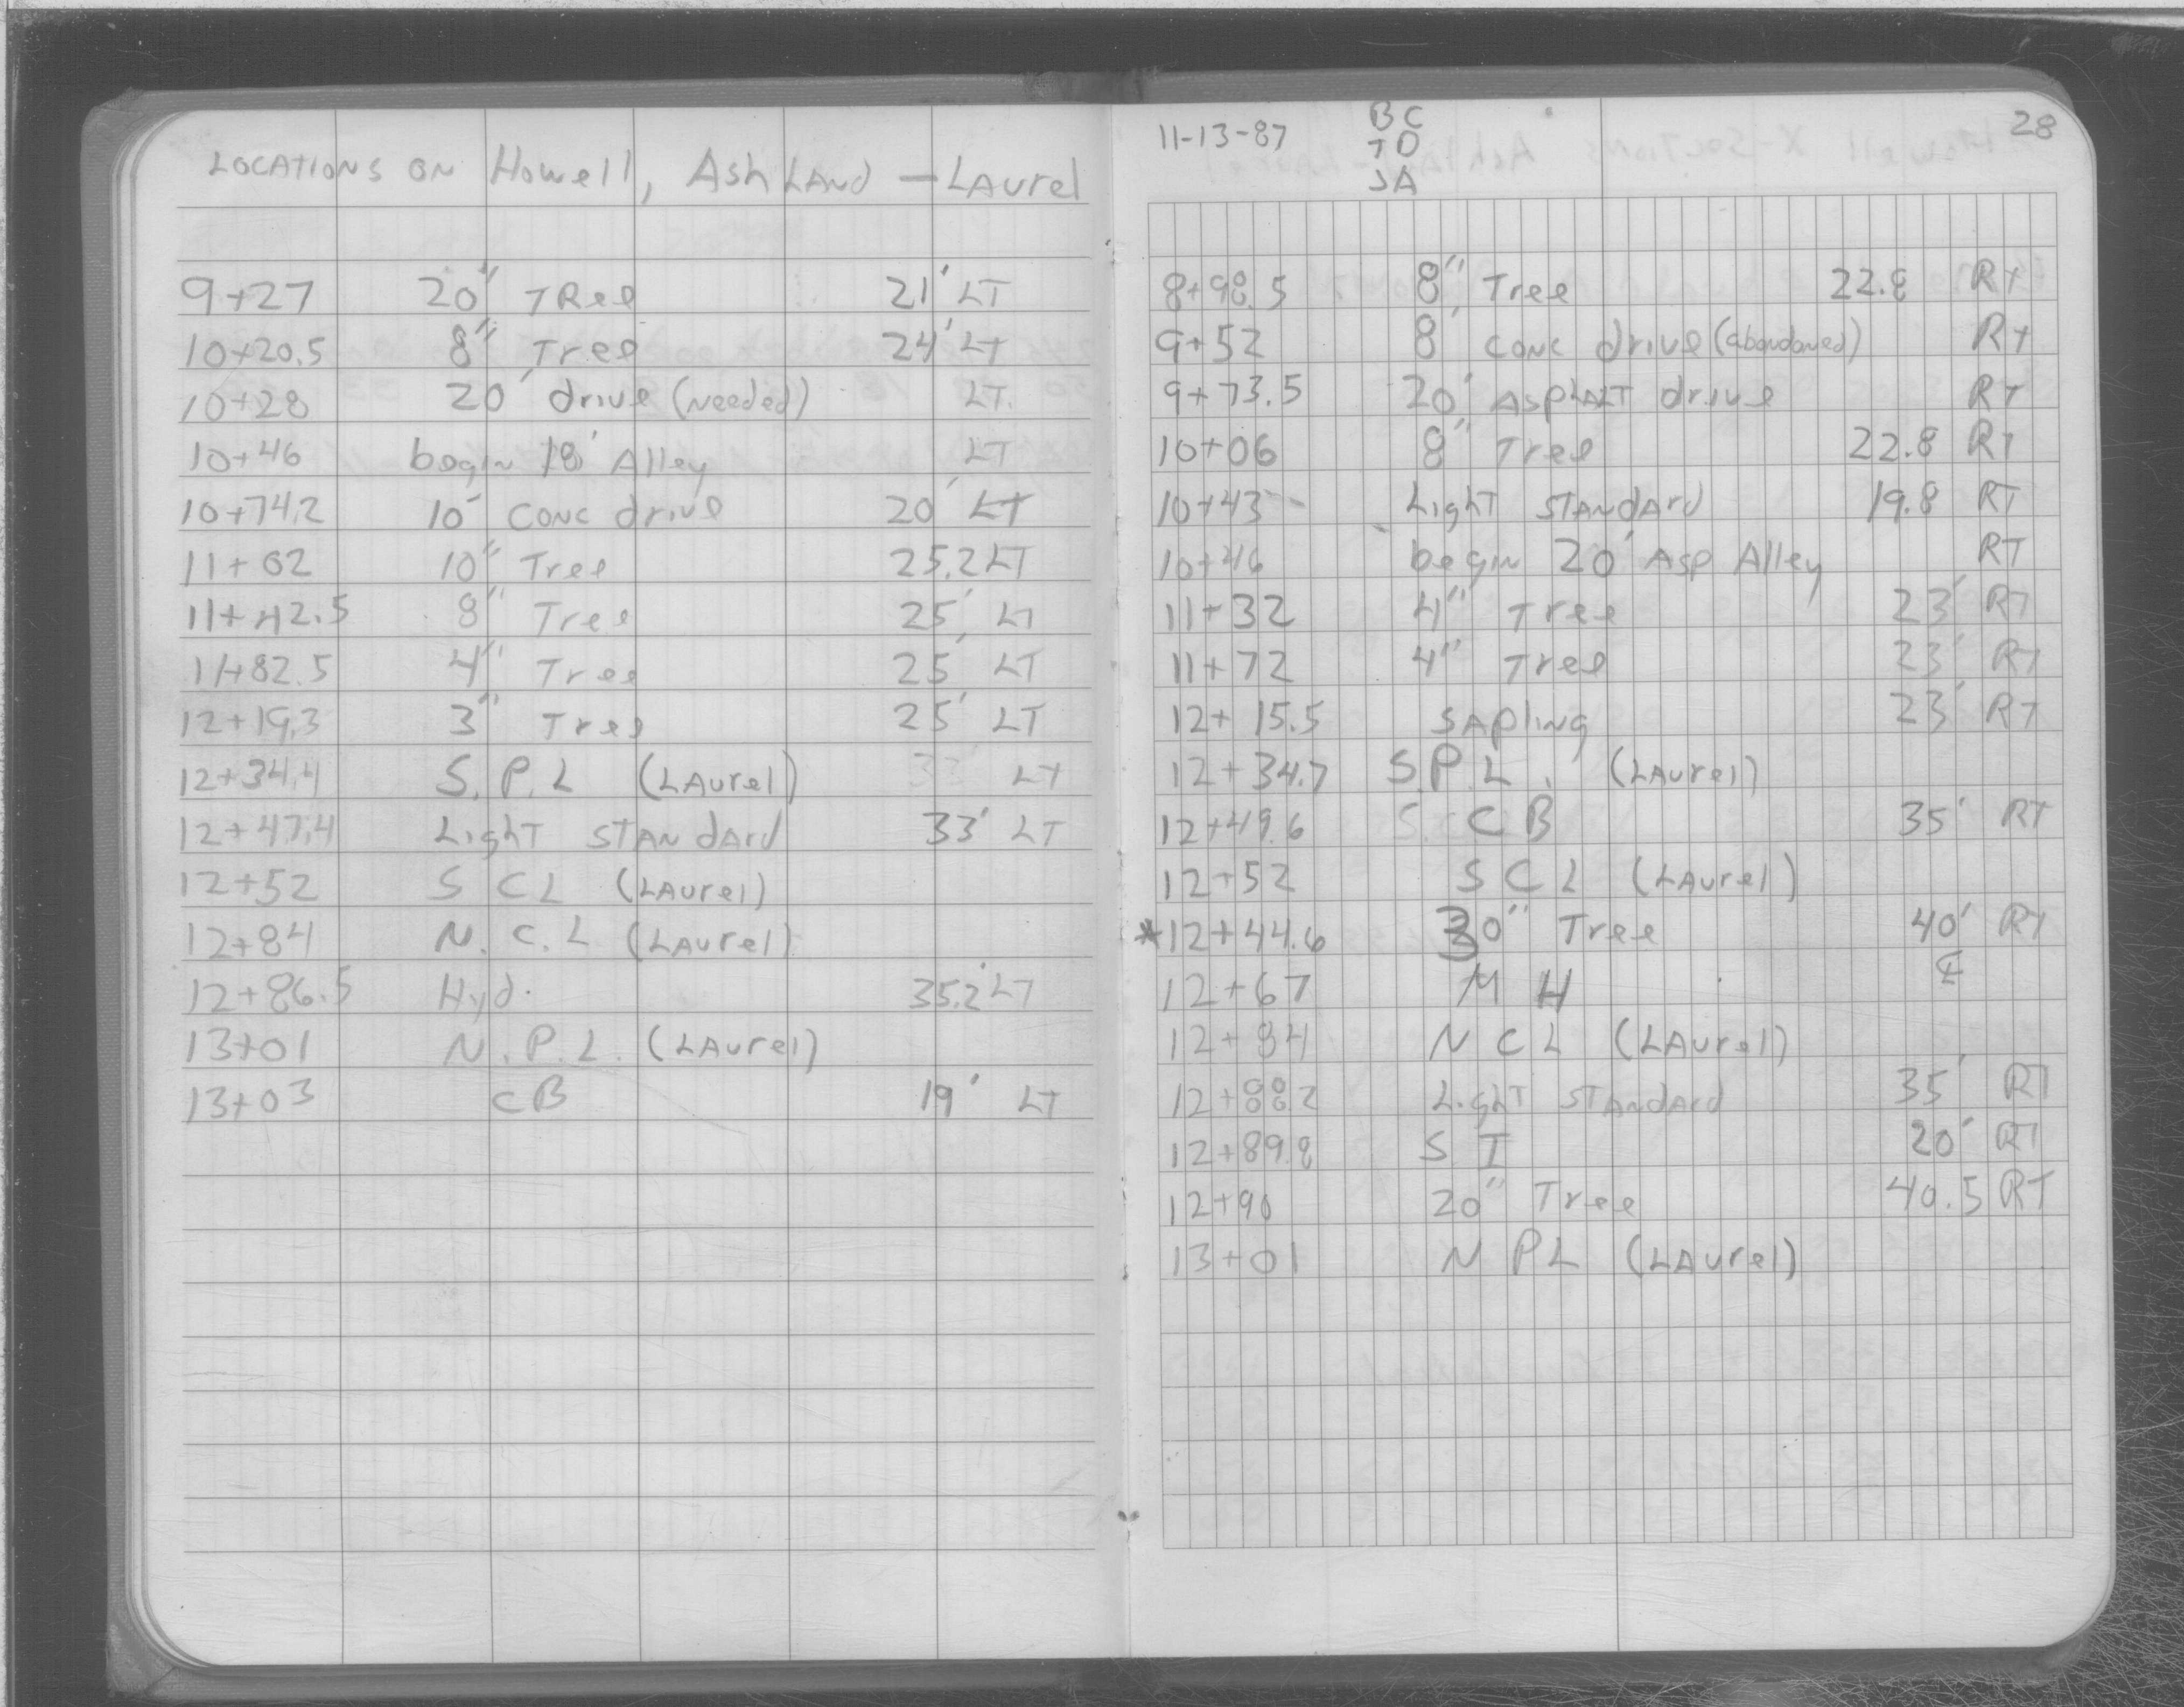 LOCATIONS ON Howell, AshLAND — LAurel
9+27 20" TRee 21' LT
10+20.5 8" Tree 24' LT
10+28 20' drive (Needed) LT.
10+46 begin 18' Alley LT
10+74.2 10' CONC drive 20' LT
11+02 10" Tree 25.2 LT
11+42.5 8" Tree 25' LT
11+82.5 4" Tree 25' LT
12+19.3 3" Tree 25' LT
12+34.4 S.P.L (LAurel) 33' LT
12+47.4 Light STANdArd 33' LT
12+52 S C L (LAurel)
12+84 N. C. L (LAurel)
12+86.5 Hyd. 35.2' LT
13+01 N.P.L. (LAurel)
13+03 CB 19' LT
11-13-87 BC 28
TD
JA
8+98.5 8" Tree 22.8 RT
9+52 8' CONC drive (abandoned) RT
9+73.5 20' AsphALT drive RT
10+06 8" Tree 22.8 RT
10+43 Light STANdArd 19.8 RT
10+46 begin 20' Asp Alley RT
11+32 4" Tree 23' RT
11+72 4" Tree 23' RT
12+15.5 SApliNg 23' RT
12+34.7 S.P.L. (LAurel)
12+49.6 CB 35' RT
12+52 S C L (LAurel)
*12+44.6 30" Tree 40' RT
12+67 M H ℄
12+84 N C L (LAurel)
12+88.2 Light STANdArd 35' RT
12+89.8 S I 20' RT
12+90 20" Tree 40.5 RT
13+01 N P L (LAurel)